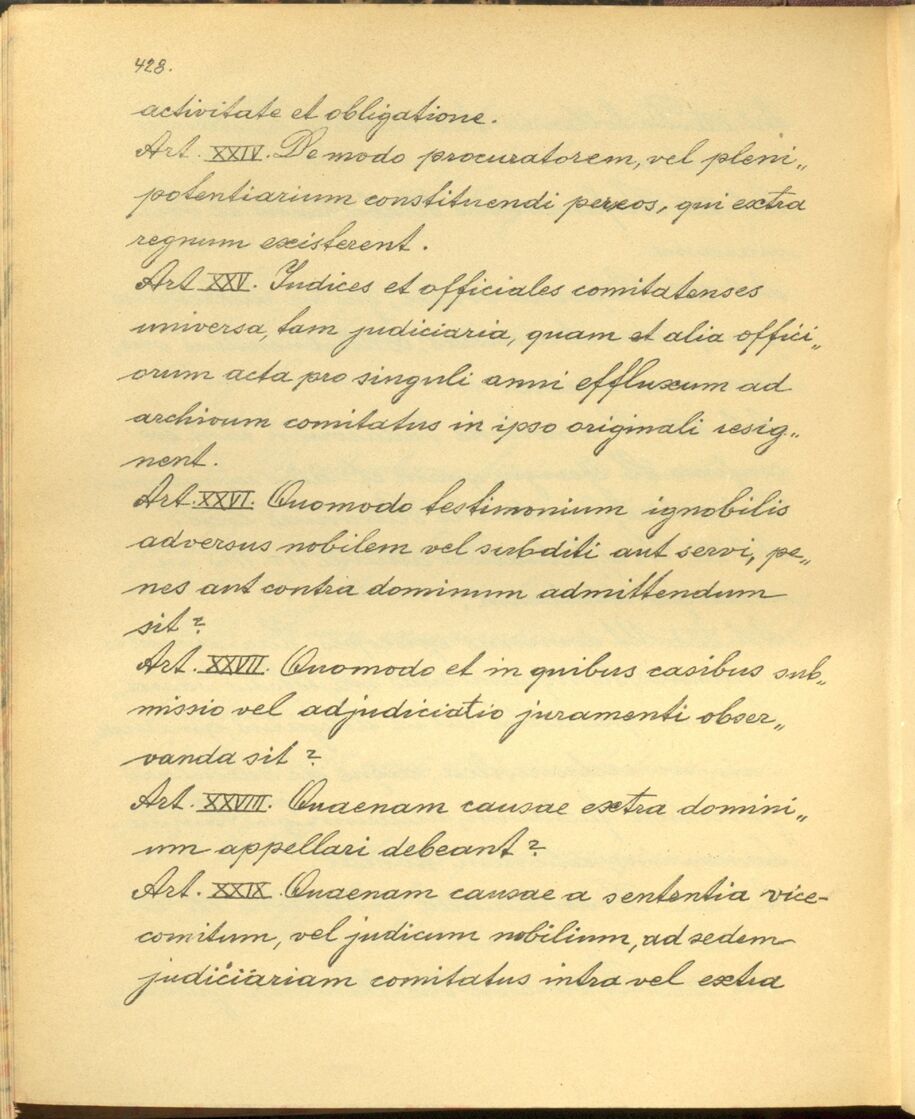 428.
activitate et obligatione.
Art. XXIV. De modo procuratorem, vel pleni„
potentiarium constituendi per eos, qui extra
regnum existerent.
Art XXV. Iudices et officiales comitatenses
universa, tam judiciaria, quam et alia offici„
orum acta pro singuli anni effluxum ad
archivum comitatus in ipso originali resig„
nent.
Art. XXVI. Quomodo testimonium ignobilis
adversus nobilem vel subditi aut servi, pe„
nes aut contra dominum admittendum
sit?
Art. XXVII. Quomodo et in quibus casibus sub„
missio vel adjudiciatio juramenti obser„
vanda sit?
Art. XXVIII. Quaenam causae extra domini„
um appellari debeant?
Art. XXIX. Quaenam causae a sententia vice-
comitum, vel judicum nobilium, ad sedem
judiciariam comitatus intra vel extra